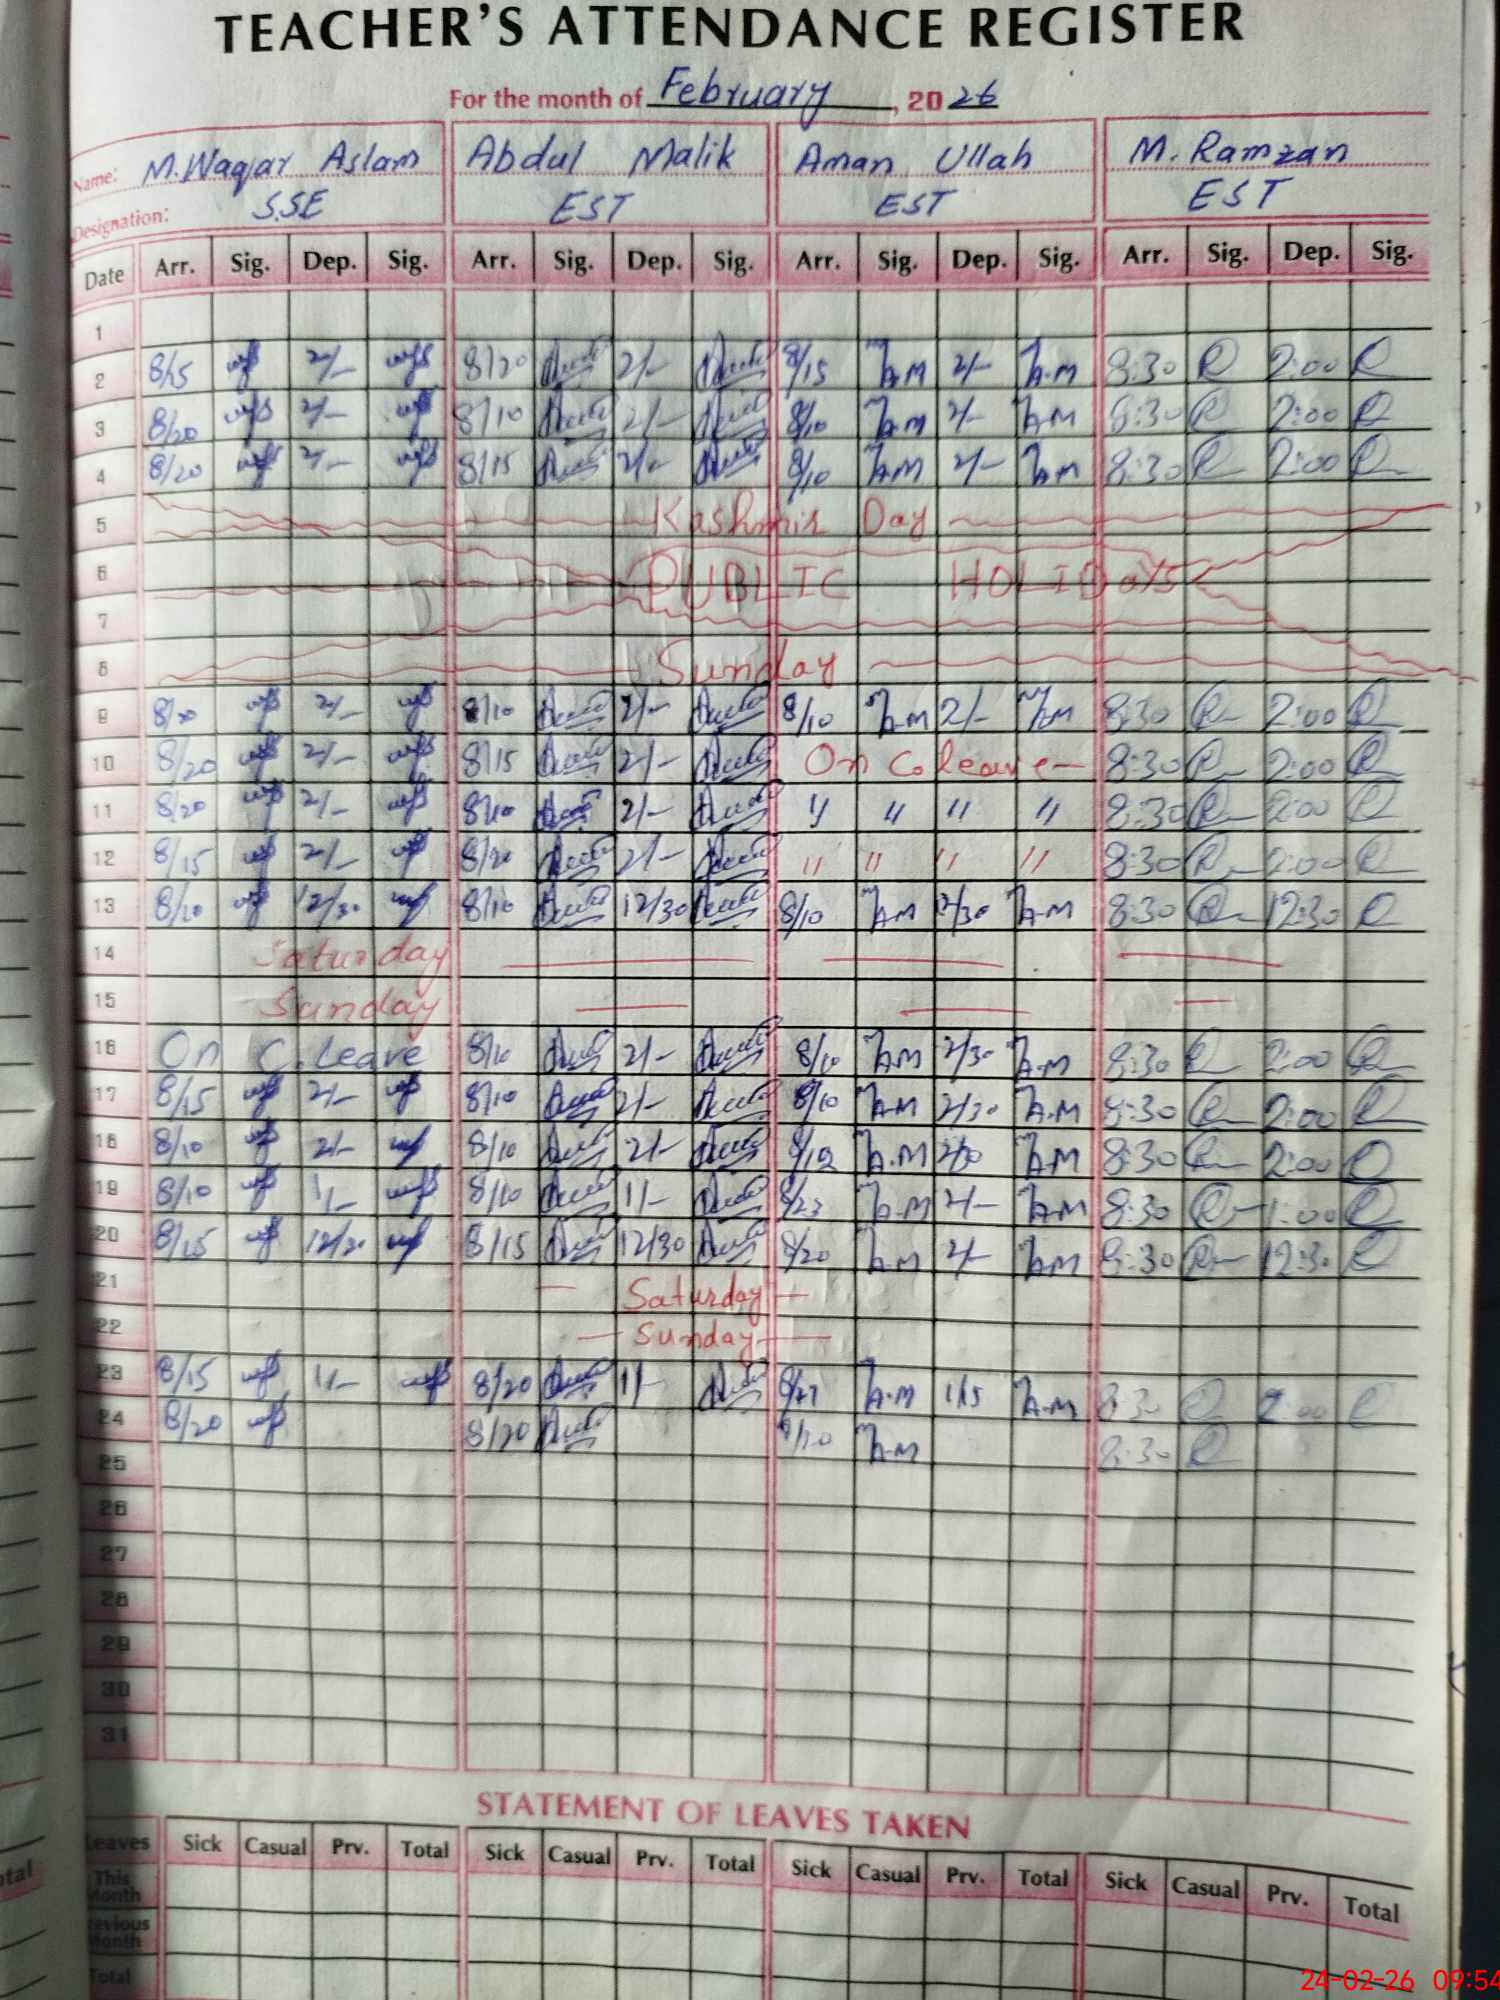 TEACHER'S ATTENDANCE REGISTER
For the month of February, 2026
Name: M.Waqar Aslam Abdul Malik Aman Ullah M. Ramzan
Designation: S.SE EST EST EST
Date Arr. Sig. Dep. Sig. Arr. Sig. Dep. Sig. Arr. Sig. Dep. Sig. Arr. Sig. Dep. Sig.
1
2 8/15 2/- 8/20 2/- 8/15 A.M 2/- A.M 8:30 R 2:00 R
3 8/20 2/- 8/10 2/- 8/10 A.M 2/- A.M 8:30 R 2:00 R
4 8/20 2/- 8/15 2/- 8/10 A.M 2/- A.M 8:30 R 2:00 R
5 Kashmir Day
6 PUBLIC HOLIDAYS
7
8 Sunday
9 2/- 8/10 2/- 8/10 A.M 2/- A.M 8:30 R 2:00 R
10 8/20 2/- 8/15 2/- On C. leave - 8:30 R 2:00 R
11 8/20 2/- 8/10 2/- " " " " 8:30 R 2:00 R
12 8/15 2/- 8/20 2/- " " " " 8:30 R 2:00 R
13 8/10 12/30 8/10 12/30 8/10 A.M 12/30 A.M 8:30 R 12:30 R
14 Saturday
15 Sunday
16 On C. Leave 8/10 2/- 8/10 A.M 2/30 A.M 8:30 R 2:00 R
17 8/15 2/- 8/10 2/- 8/10 A.M 2/30 A.M 8:30 R 2:00 R
18 8/10 2/- 8/10 2/- A.M A.M 8:30 R 2:00 R
19 8/10 1/- 8/10 1/- 8/23 A.M 2/- A.M 8:30 R 1:00 R
20 8/15 12/30 8/15 12/30 8/20 A.M 2/- A.M 8:30 R 12:30 R
21 - Saturday -
22 - Sunday -
23 8/15 1/- 8/20 1/- A.M 1/15 A.M 8:30 R 2:00 R
24 8/20 8/20 A.M 8:30 R
25
26
27
28
29
30
31
STATEMENT OF LEAVES TAKEN
Leaves Sick Casual Prv. Total Sick Casual Prv. Total Sick Casual Prv. Total Sick Casual Prv. Total
This Month
Previous Month
Total
24-02-26 09:54